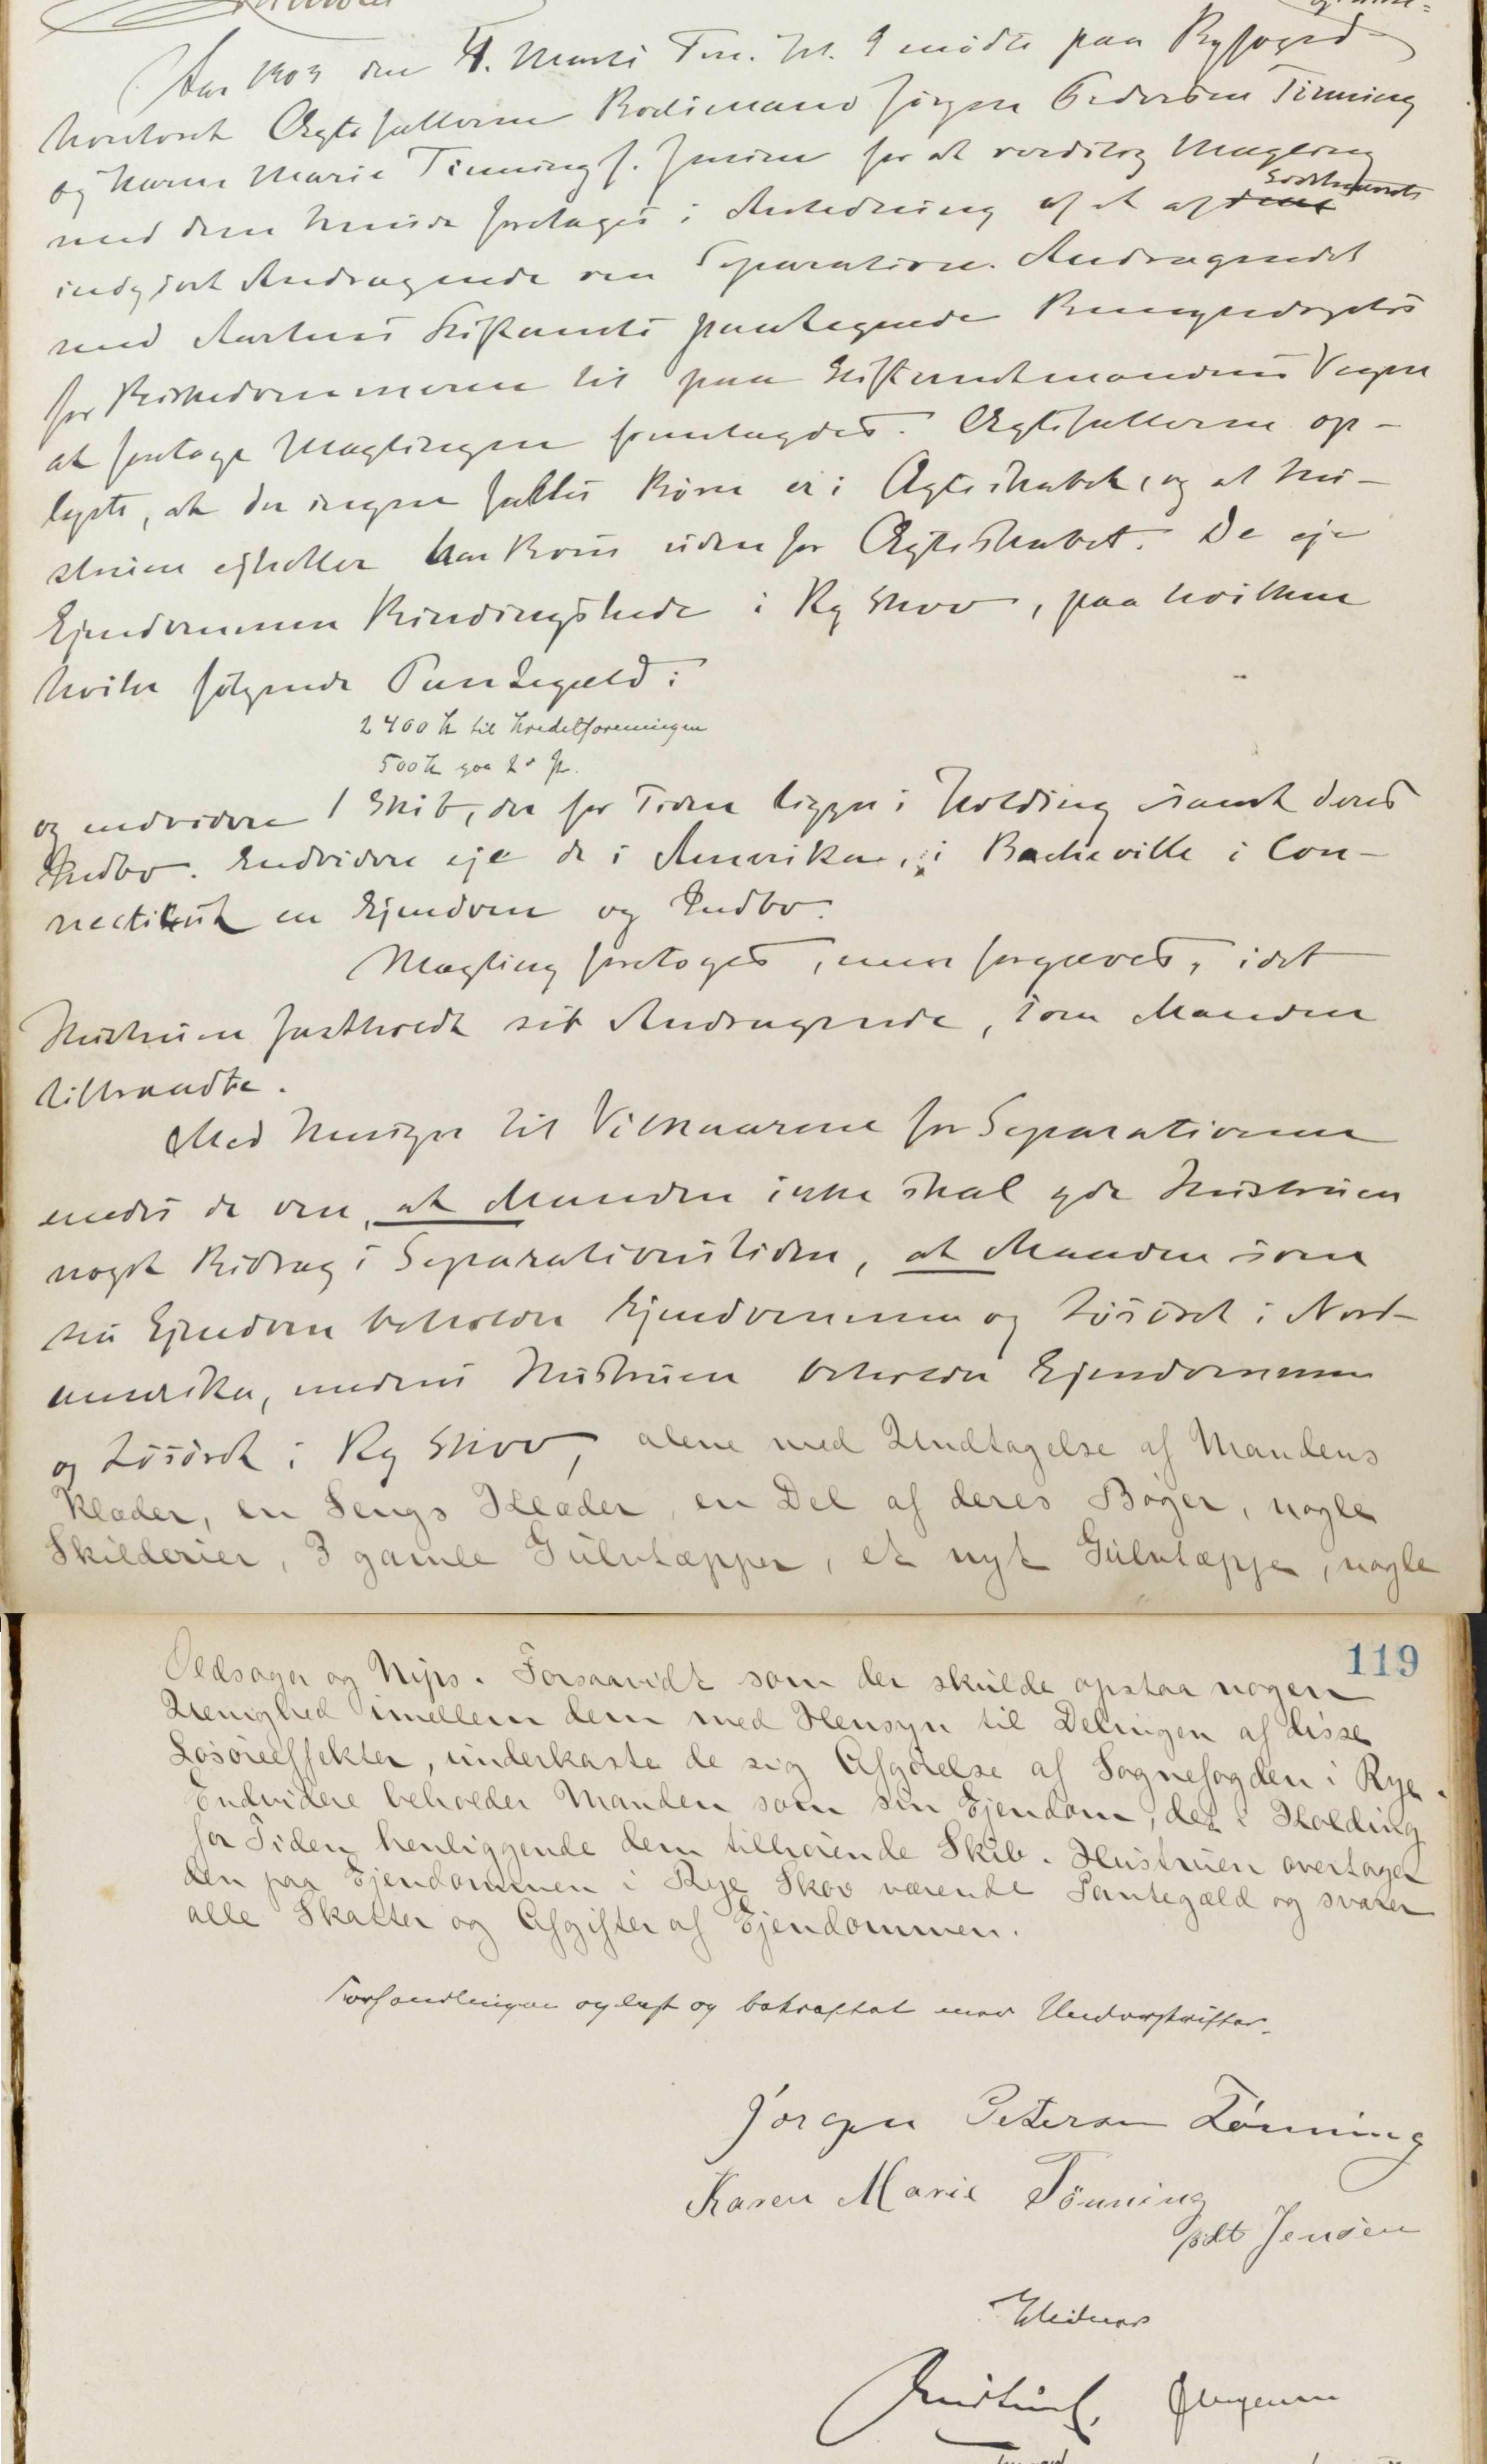 Aar 1903 den 4. Marts Fm. Kl. 9 mødte paa Byfoged-
kontoret Ægtefællerne Bødkermand Jørgen Pedersen Tinning
og Karen Marie Tinning f. Jensen for at verdslig Mægling
med dem kunde foretages i Anledning af et af
indgivet Andragende om Separation. Andragendet
med Aarhus Stiftamts paategnede Bemyndigelse
for Birkedommeren til paa Stiftamtmandens Vegne
at foretage Mæglingen fremlagdes. Ægtefællerne op-
lyste, at der ingen fælles Børn er i Ægteskabet, og at Hu-
struen ejheller har Børn udenfor Ægteskabet. De eje
Ejendommen Rindingshede i Ry Skov, paa hvilken
hviler følgende Pantegæld:
2400 Kr til Kreditforeningen
500 Kr
og endvidere 1 Skib, der for Tiden ligger i Kolding samt deres
Indbo. Endvidere eje de i Amerika, i Bacheville i Con-
necticut en Ejendom og Indbo.
Mægling foretoges, men forgæves, idet
Hustruen fastholdt sit Andragende, som Manden
tiltraadte.
Med Hensyn til Vilkaarene for Separationen
enedes de om, at Manden ikke skal yde Hustruen
noget Bidrag i Separationstiden, at Manden som
sin Ejendom beholder Ejendommen og Løsøret i Nord-
amerika, medens Hustruen beholder Ejendommen
og Løsøret i Ry Skov, alene med Undtagelse af Mandens
Klæder, en Sengs Klæder, en Del af deres Bøger, nogle
Skilderier, 3 gamle Gulvtæpper, et nyt Gulvtæppe, nogle
119
Oldsager og Nips. Forsaavidt som der skulde opstaa nogen
Uenighed imellem dem med Hensyn til Delingen af disse
Løsøreeffekter, underkaste de sig Afgørelse af Sognefogden i Rye.
Endvidere beholder Manden som sin Ejendom, det i Kolding
for Tiden henliggende dem tilhørende Skib. Hustruen overtager
den paa Ejendommen i Rye Skov værende Pantegæld og svarer
alle Skatter og Afgifter af Ejendommen.
Forhandlingen oplæst og bekræftet med Underskrifter.
Jörgen Petersen Tönning
Karen Marie Tönning
födt Jensen